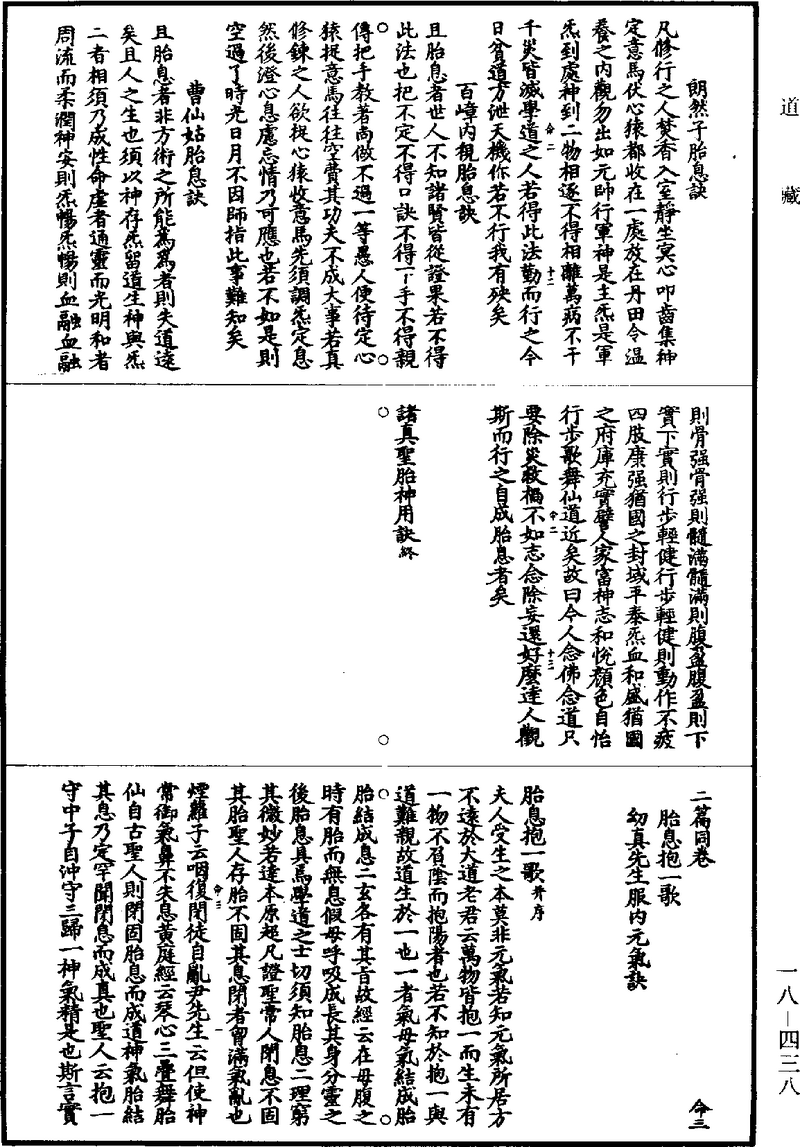 道藏
朗然子胎息訣
凡修行之人焚香入室靜坐冥心叩齒集神
定意馬伏心猿都收在一處放在丹田令溫
養之內觀勿出如元帥行軍神是主炁是軍
炁到處神到二物相逐不得相離萬病不干
千災皆滅學道之人若得此法勤而行之今
日貧道方泄天機你若不行我有殃矣
百嶂內視胎息訣
且胎息者世人不知諸賢皆從證果若不得
此法也把不定不得口訣不得下手不得親
傳把手教著尚做不過一等愚人便待定心
猿捉意馬往往空費其功夫不成大事若真
修鍊之人欲捉心猿收意馬先須調炁定息
然後澄心息慮忘情乃可應也若不如是則
空過了時光日月不因師指此事難知矣
曹仙姑胎息訣
且胎息者非方術之所能為為者則失道遠
矣且人之生也須以神存炁留道生神與炁
二者相須乃成性命虛者通靈而光明和者
周流而柔潤神安則炁暢炁暢則血融血融
命二
十二
則骨强骨强則髓滿髓滿則腹盈腹盈則下
實下實則行步輕健行步輕健則動作不疲
四肢康强猶國之封域平泰炁血和盛猶國
之府庫充實譬人家富神志和悅顏色自怡
行步歌舞仙道近矣故曰令人念佛念道只
要除災救禍不如志念除妄還好麼達人觀
斯而行之自成胎息者矣
命二
十三
諸真聖胎神用訣終
二篇同卷
胎息抱一歌
幼真先生服內元氣訣
命三
胎息抱一歌并序
夫人受生之本莫非元氣若知元氣所居方
不遠於大道老君云萬物皆抱一而生未有
一物不負陰而抱陽者也若不知於抱一與
道難親故道生於一也一者氣母氣結成胎
胎結成息二玄各有其旨故經云在母腹之
時有胎而無息假母呼吸成長其身分靈之
後胎息具焉學道之士切須知胎息二理窮
其微妙若達本原超凡證聖常人閉息不固
其胎聖人存胎不固其息閉者胷滿氣亂也
煙蘿子云咽復閉徒自亂尹先生云但使神
常御氣鼻不失息黃庭經云琴心三疊舞胎
仙自古聖人則閉固胎息而成道神氣胎結
其息乃定罕聞閉息而成真也聖人云抱一
守中子自沖守三歸一神氣精是也斯言實
命三
一
一八—四三八